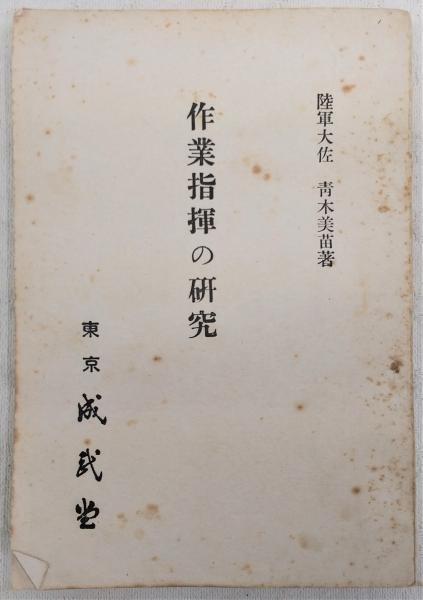 陸軍大佐 靑木美苗著
作業指揮の研究
東京 成武堂